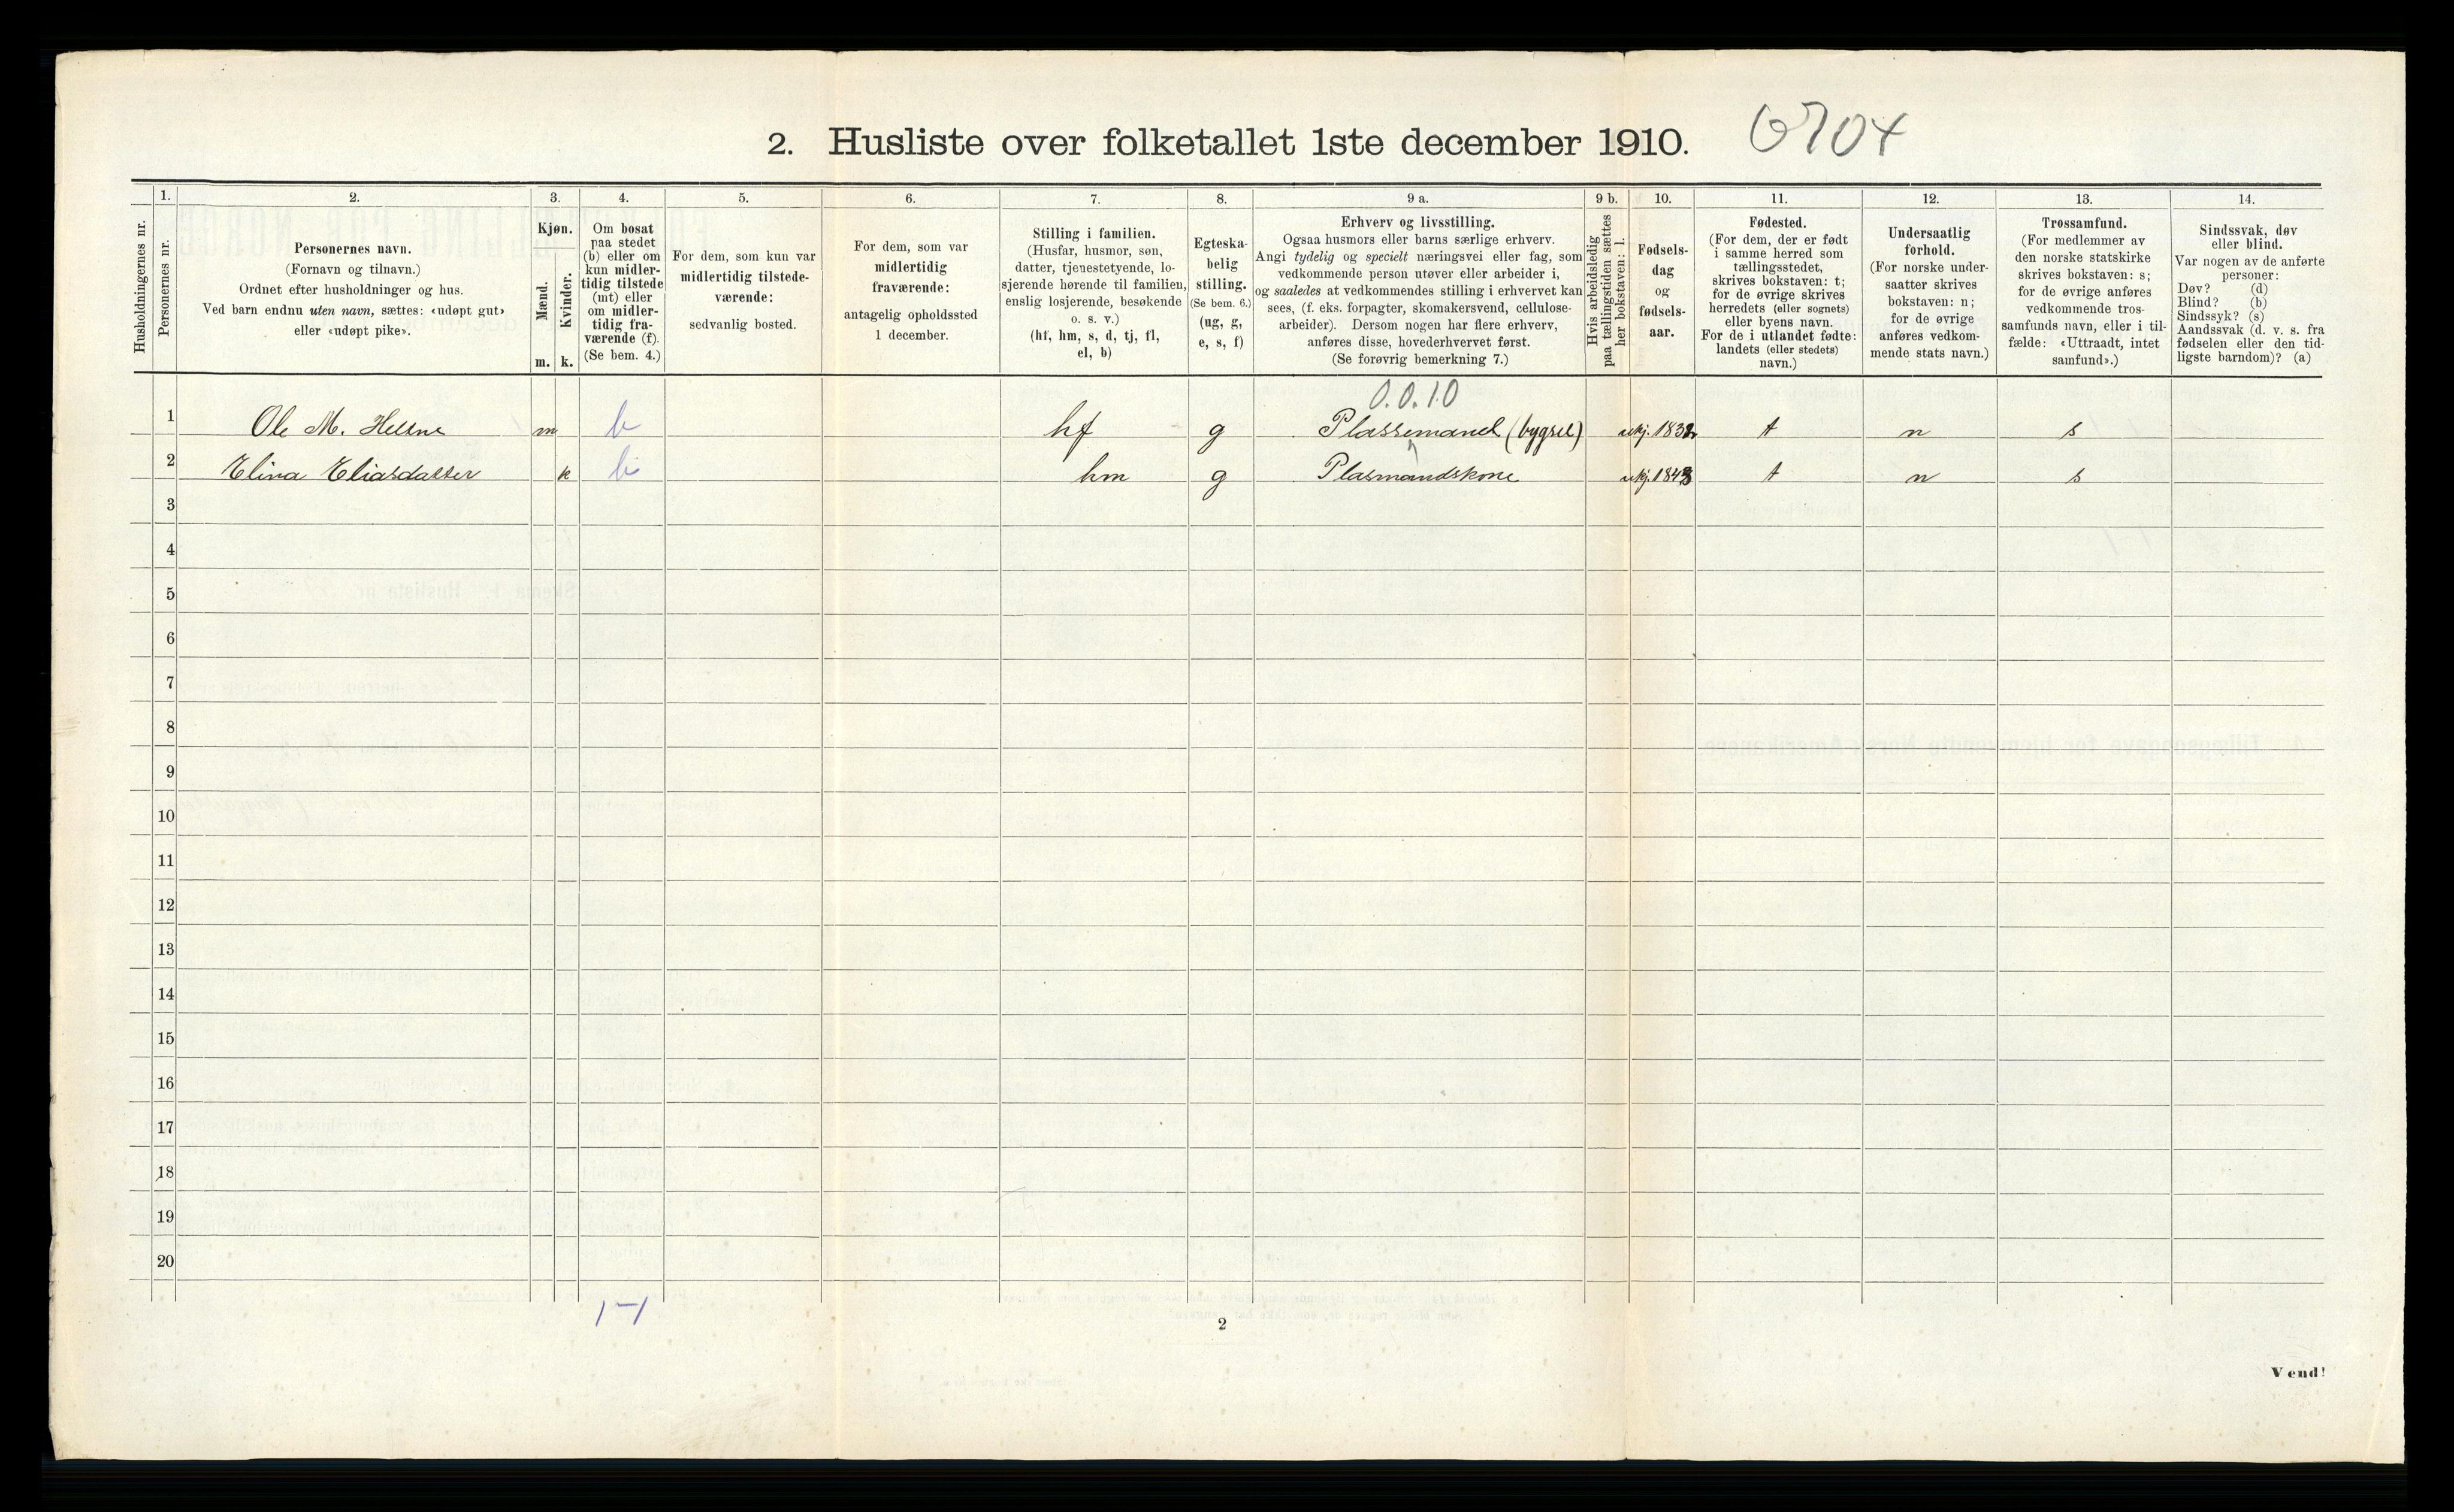 2. Husliste over folketallet 1ste december 1910. 6704
Husholdningernes nr.
1. Personernes nr.
2.
Personernes navn.
(Fornavn og tilnavn.)
Ordnet efter husholdninger og hus.
Ved barn endnu uten navn, sættes: «udøpt gut»
eller «udøpt pike».
3.
Kjøn.
Mænd. Kvinder.
m. k.
4.
Om bosat
paa stedet
(b) eller om
kun midler-
tidig tilstede
(mt) eller
om midler-
tidig fra-
værende (f).
(Se bem. 4.)
5.
For dem, som kun var
midlertidig tilstede-
værende:
sedvanlig bosted.
6.
For dem, som var
midlertidig
fraværende:
antagelig opholdssted
1 december.
7.
Stilling i familien.
(Husfar, husmor, søn,
datter, tjenestetyende, lo-
sjerende hørende til familien,
enslig losjerende, besøkende
o. s. v.)
(hf, hm, s, d, tj, fl,
el, b)
8.
Egteska-
belig
stilling.
(Se bem. 6.)
(ug, g,
e, s, f)
9 a.
Erhverv og livsstilling.
Ogsaa husmors eller barns særlige erhverv.
Angi tydelig og specielt næringsvei eller fag, som
vedkommende person utøver eller arbeider i,
og saaledes at vedkommendes stilling i erhvervet kan
sees, (f. eks. forpagter, skomakersvend, cellulose-
arbeider). Dersom nogen har flere erhverv,
anføres disse, hovederhvervet først.
(Se forøvrig bemerkning 7.)
9 b.
Hvis arbeidsledig
paa tællingstiden sættes
her bokstaven: l.
10.
Fødsels-
dag
og
fødsels-
aar.
11.
Fødested.
(For dem, der er født
i samme herred som
tællingsstedet,
skrives bokstaven: t;
for de øvrige skrives
herredets (eller sognets)
eller byens navn.
For de i utlandet fødte:
landets (eller stedets)
navn.)
12.
Undersaatlig
forhold.
(For norske under-
saatter skrives
bokstaven: n;
for de øvrige
anføres vedkom-
mende stats navn.)
13.
Trossamfund.
(For medlemmer av
den norske statskirke
skrives bokstaven: s;
for de øvrige anføres
vedkommende tros-
samfunds navn, eller i til-
fælde: «Uttraadt, intet
samfund».)
14.
Sindssvak, døv
eller blind.
Var nogen av de anførte
personer:
Døv? (d)
Blind? (b)
Sindssyk? (s)
Aandssvak (d. v. s. fra
fødselen eller den tid-
ligste barndom)? (a)
0.0.10
1 Ole M. Helsne m b hf g Plassemand (bygsel) ukj. 1832 t n s
2 Elina Eliasdatter k b hm g Plasmandskone ukj. 1843 t n s
3
4
5
6
7
8
9
10
11
12
13
14
15
16
17
18
19
20
1-1
2
Vend!